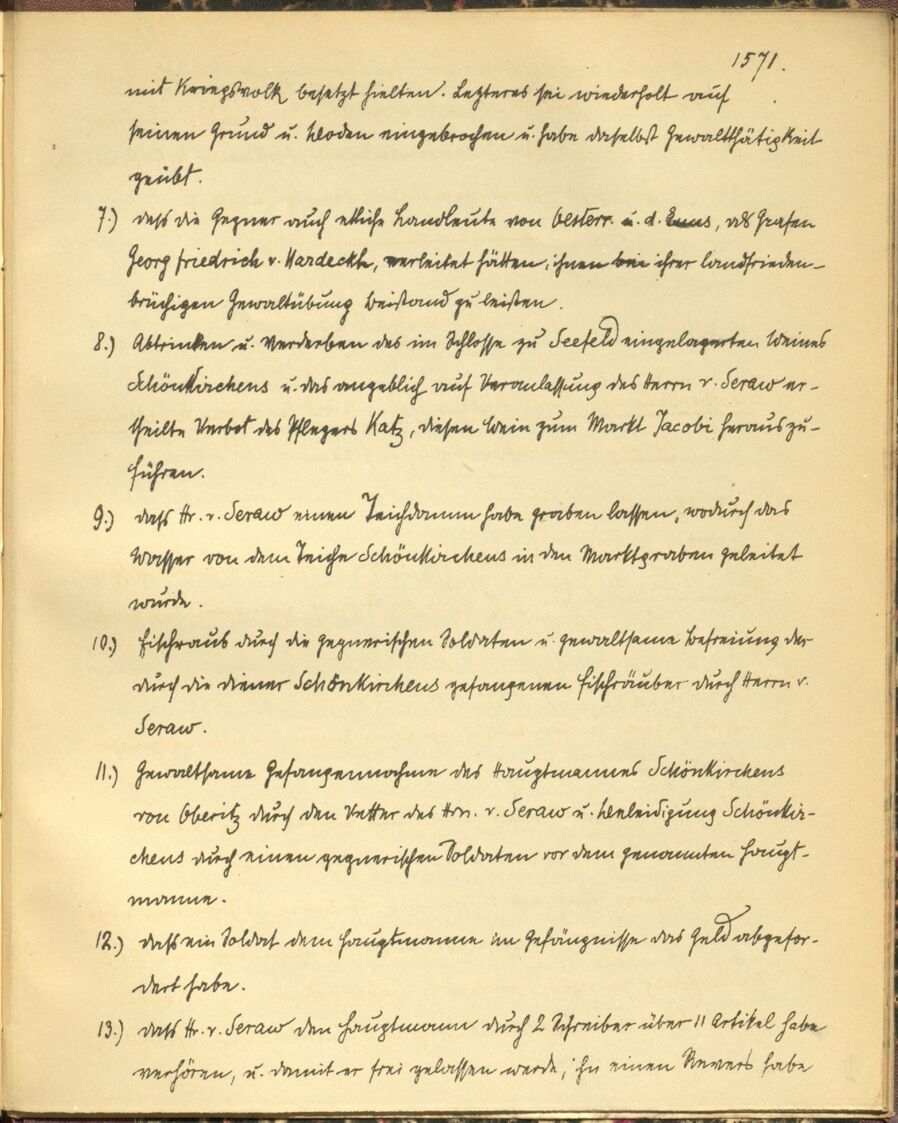 1571.
mit Kriegsvolk besetzt hielten. Letzteres sei wiederholt auf
seinen Grund u. Boden eingebrochen u. habe daselbst Gewaltthätigkeit
geübt.
7.) dass die Gegner auch etliche Landleute von Oesterr. u. d. Enns, als Grafen
Georg Friedrich v. Hardeckh, verleitet hätten, ihnen bei ihrer landfrieden-
brüchigen Gewaltübung Beistand zu leisten.
8.) Abtrinken u. Verderben des im Schlosse zu Seefeld eingelagerten Weines
Schönkirchens u. das angeblich auf Veranlassung des Herrn v. Seraw er-
theilte Verbot des Pflegers Katz, diesen Wein zum Markt Jacobi herauszu-
führen.
9.) dass Hr. v. Seraw einen Teichdamm habe graben lassen, wodurch das
Wasser von dem Teiche Schönkirchens in den Marktgraben geleitet
wurde.
10.) Fischraub durch die gegnerischen Soldaten u. gewaltsame Befreiung der
durch die Diener Schönkirchens gefangenen Fischräuber durch Herrn v.
Seraw.
11.) Gewaltsame Gefangennahme des Hauptmannes Schönkirchens
von Oberitz durch den Vetter des Hrn. v. Seraw u. Beleidigung Schönkir-
chens durch einen gegnerischen Soldaten vor dem genannten Haupt-
manne.
12.) dass ein Soldat dem Hauptmanne im Gefängnisse das Geld abgefor-
dert habe.
13.) dass Hr. v. Seraw den Hauptmann durch 2 Schreiber über 11 Artikel habe
verhören, u. damit er frei gelassen werde, ihn einen Revers habe